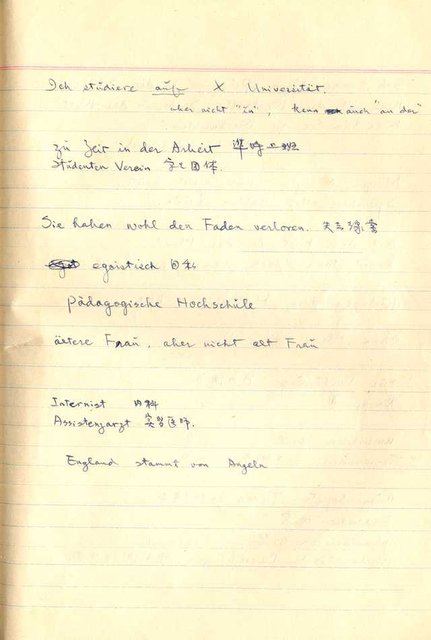 Ich studiere auf X Universität.
aber nicht "in", kenn auch "an der"
zu Zeit in der Arbeit 準時上班
Studenten Verein 学生団体.
Sie haben wohl den Faden verloren. 失去線索
egoistisch 自私
Pädagogische Hochschule
ältere Frau, aber nicht alt Frau
Internist 内科
Assistenzarzt 実習医師.
England stammt von Angeln